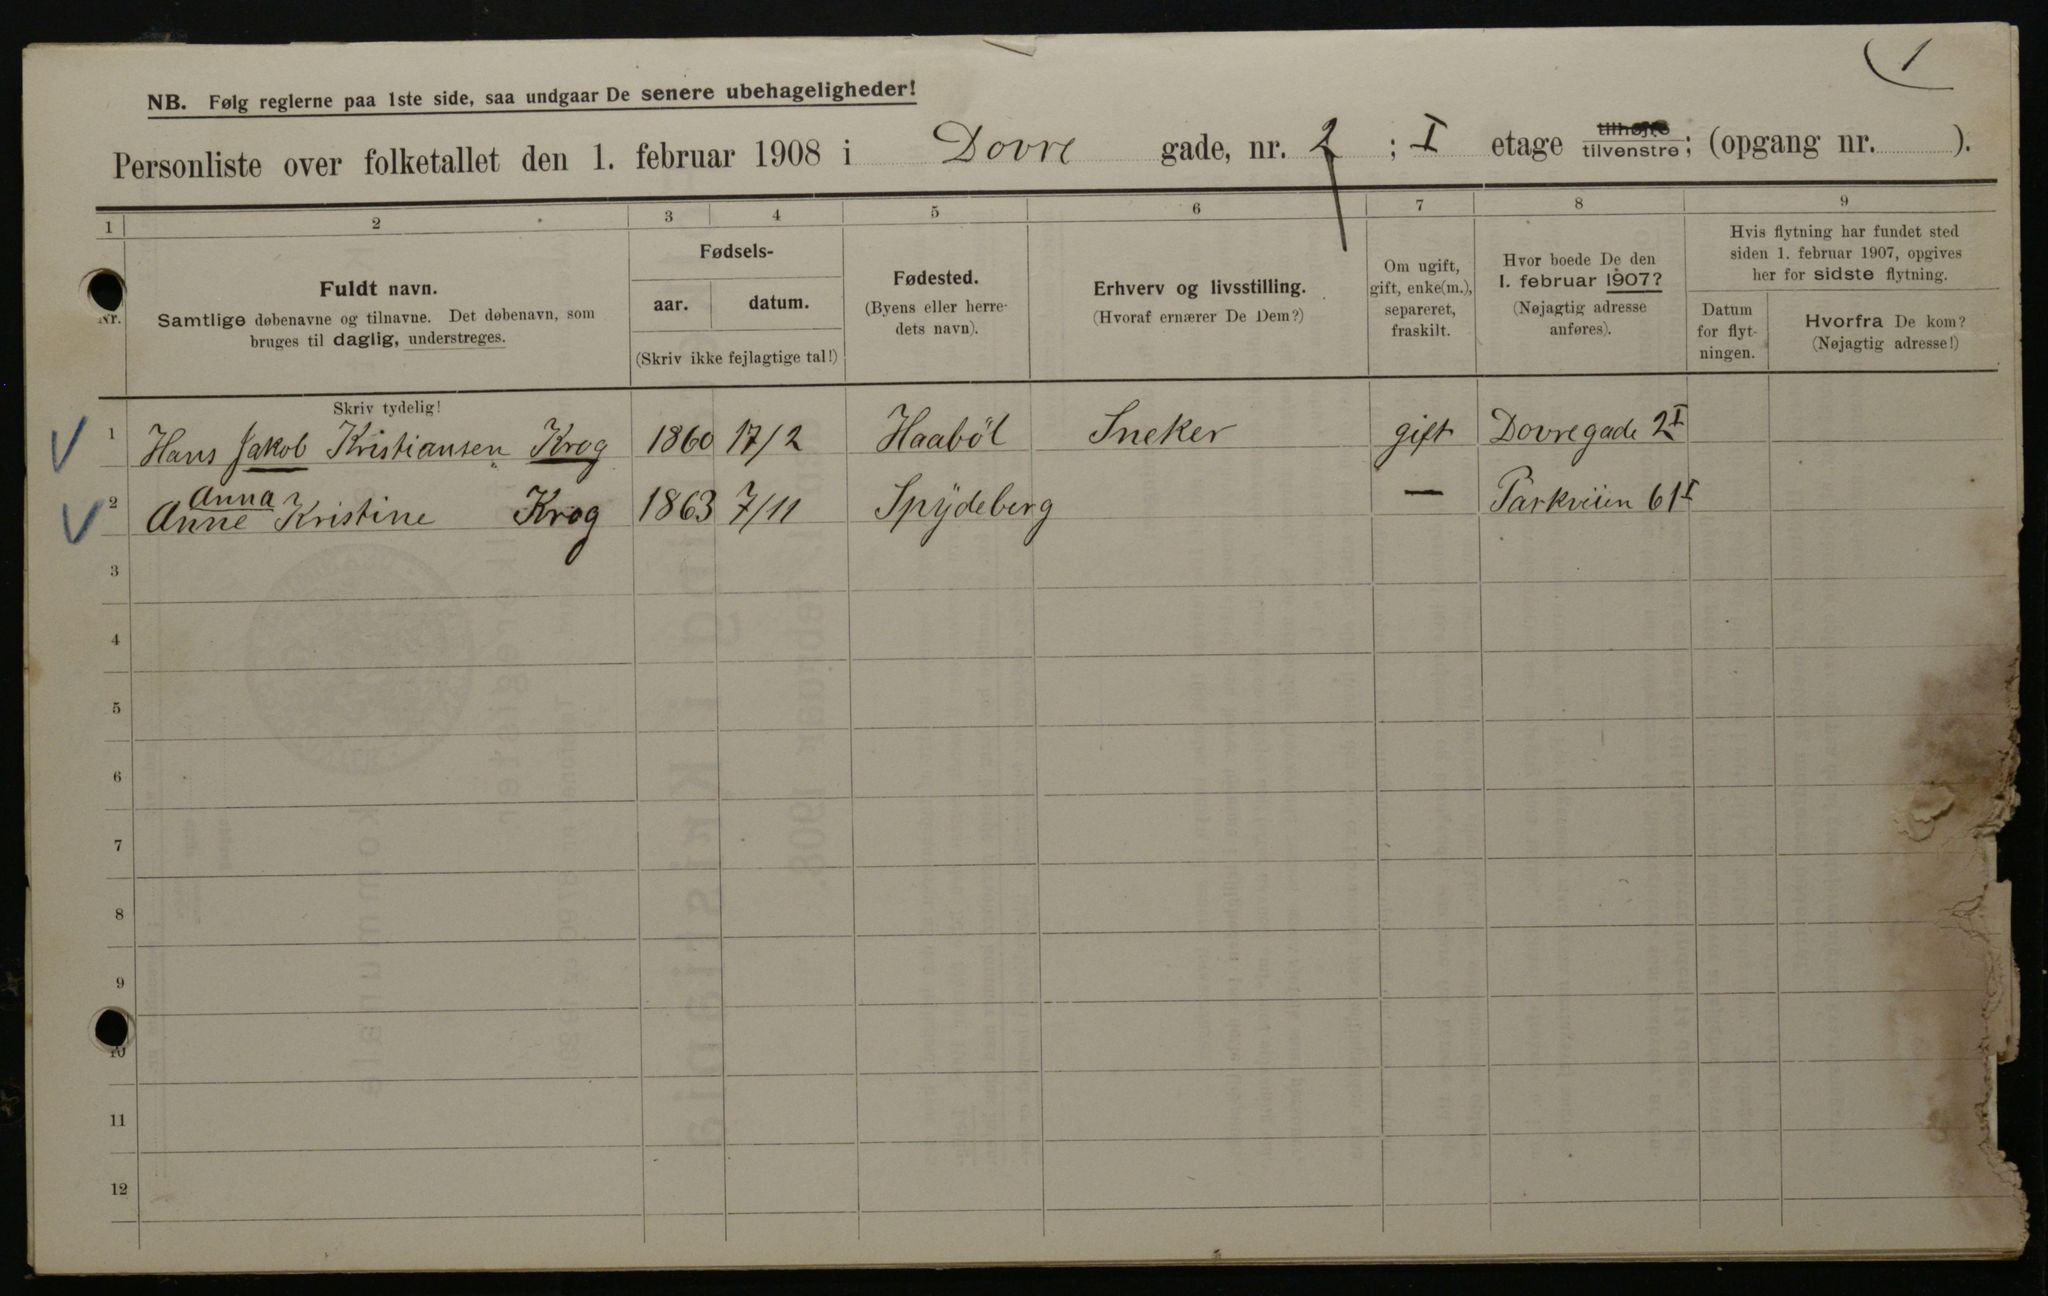 1
NB. Følg reglerne paa 1ste side, saa undgaar De senere ubehageligheder!
Personliste over folketallet den 1. februar 1908 i Dovre gade, nr. 2 ; I etage tilhøjre tilvenstre; (opgang nr. ).
1 2 3 4 5 6 7 8 9
Nr.
Fuldt navn.
Samtlige døbenavne og tilnavne. Det døbenavn, som
bruges til daglig, understreges.
Fødsels-
aar. datum.
(Skriv ikke fejlagtige tal!)
Fødested.
(Byens eller herre-
dets navn).
Erhverv og livsstilling.
(Hvoraf ernærer De Dem?)
Om ugift,
gift, enke(m.),
separeret,
fraskilt.
Hvor boede De den
1. februar 1907?
(Nøjagtig adresse
anføres).
Hvis flytning har fundet sted
siden 1. februar 1907, opgives
her for sidste flytning.
Datum
for flyt-
ningen.
Hvorfra De kom?
(Nøjagtig adresse!)
Skriv tydelig!
1 Hans Jakob Kristiansen Krog 1860 17/2 Haabøl Sneker gift Dovregade 2 I
Anna
2 Anne Kristine Krog 1863 7/11 Spÿdeberg — Parkveien 61 I
3
4
5
6
7
8
9
10
11
12